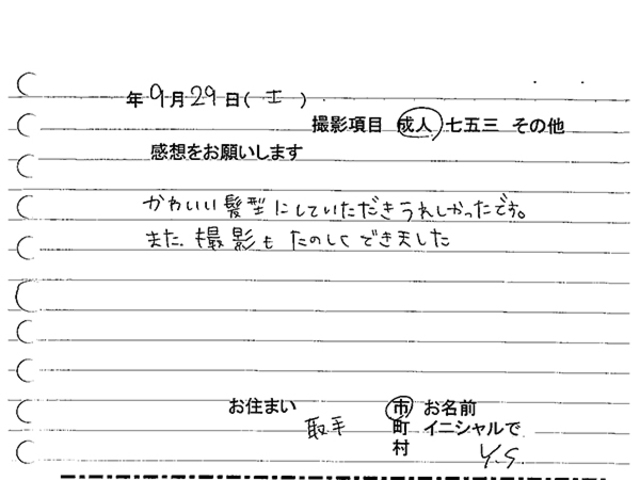 年9月29日(土)
撮影項目 成人 七五三 その他
感想をお願いします
かわいい髪型にしていただきうれしかったです。
また、撮影もたのしくできました
お住まい 取手 市 お名前
町 イニシャルで
村 Y.S